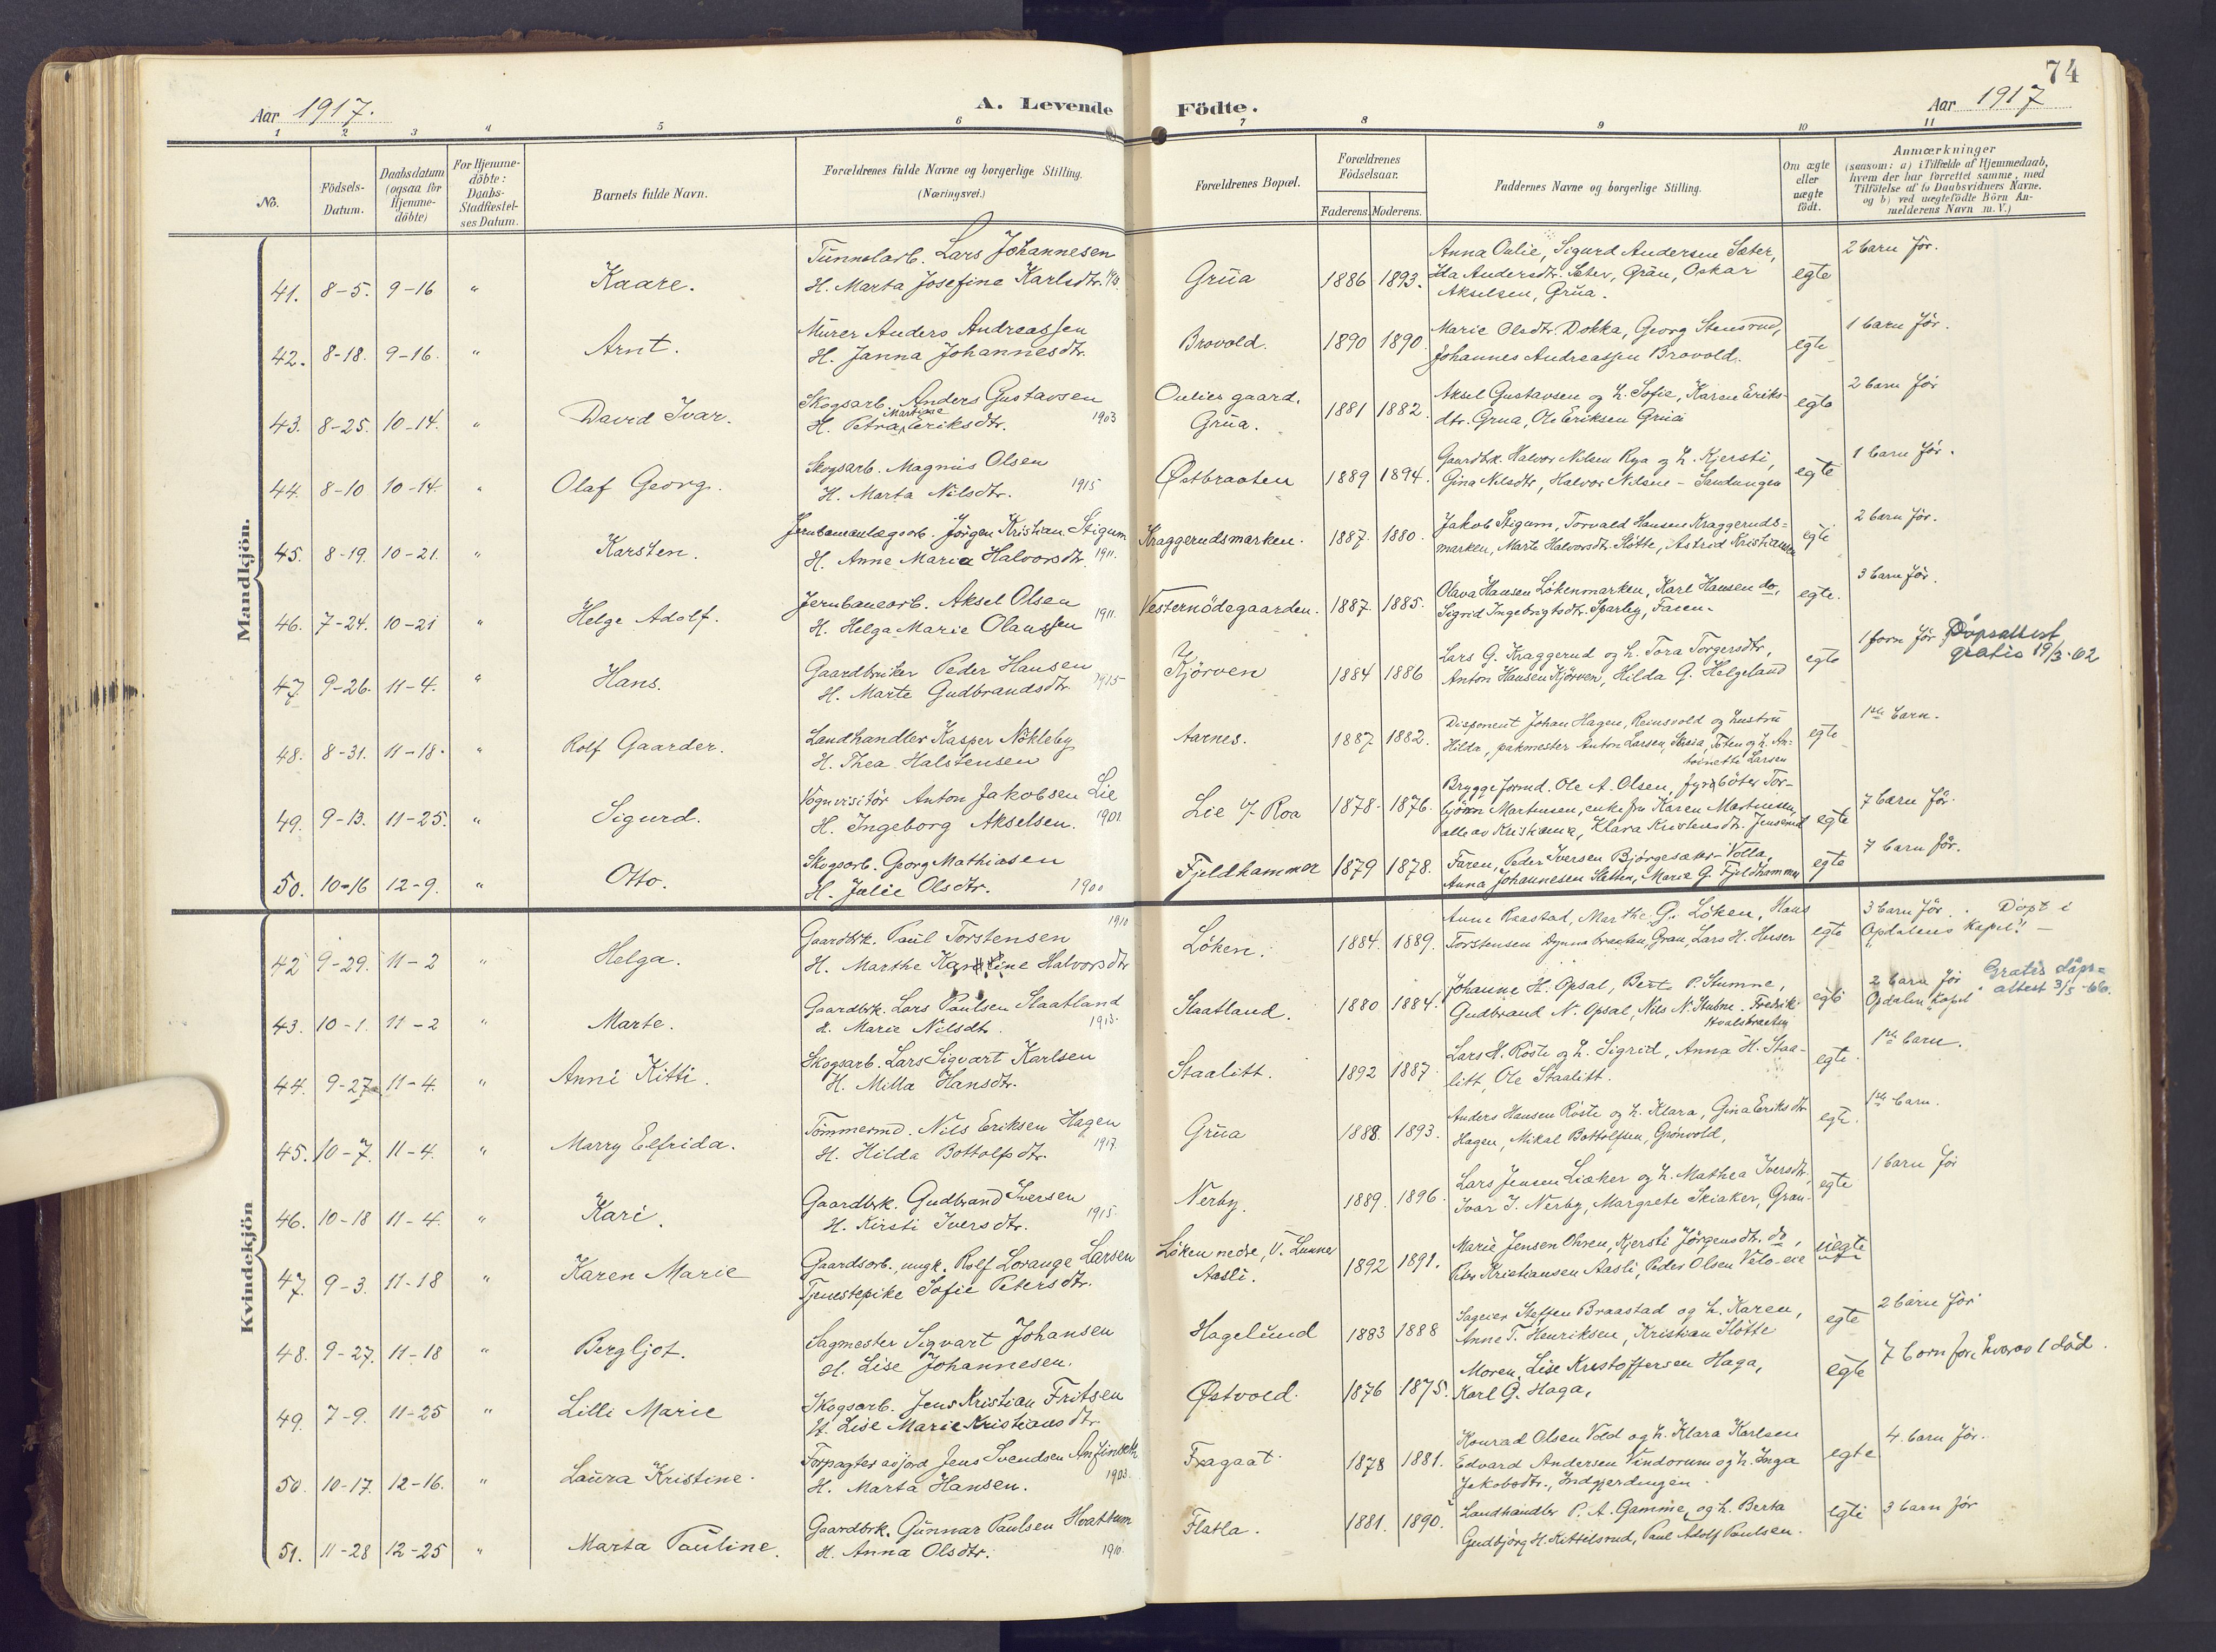 74
Aar 1917.
A. Levende Födte.
Aar 1917
1 2 3 4 5 6 7 8 9 10 11
No.
Födsels-Datum.
Daabsdatum (ogsaa for Hjemme-döbte)
For Hjemme-döbte: Daabs-Stadfæstel-ses Datum.
Barnets fulde Navn.
Forældrenes fulde Navne og borgerlige Stilling. (Næringsvei.)
Forældrenes Bopæl.
Forældrenes Födselsaar.
Faderens. Moderens.
Faddernes Navne og borgerlige Stilling.
Om ægte eller uægte födt.
Anmærkninger
(saasom: a) i Tilfælde af Hjemmedaab,
hvem der har forrettet samme, med
Tilföielse af to Daabsvidners Navne.
og b) ved uægtefödte Börn An-
melderens Navn m. V.)
Mandkjön.
41. 8-5. 9-16 " Kaare.
Tunnelarb. Lars Johannesen
H. Marta Josefine Karlsdtr.
Grua 1886 1893.
Anna Oulie, Sigurd Andersen Sæter,
Ida Andersdtr. Sæter, Gran, Oskar
Akselsen, Grua.
egte 2 barn før.
42. 8-18. 9-16. " Arnt.
Murer Anders Andreassen
H. Janna Johannesdtr.
Brovold. 1890 1890.
Marie Olsdtr. Dokka, Georg Stensrud,
Johannes Andreassen Brovold.
egte 1 barn før.
43. 8-25. 10-14. " David Ivar.
Skogsarb. Anders Gustavsen
H. Petra Martine Eriksdtr. 1903
Oulies gaard, Grua. 1881 1882.
Aksel Gustavsen og h. Sofie, Karen Eriks-
dtr. Grua, Ole Eriksen Grua
egte 2 barn før
44. 8-10 10-14. " Olaf Georg.
Skogsarb. Magnus Olsen
H. Marta Nilsdtr. 1915
Østbraaten 1889 1894.
Gaardbrk. Halvor Nilsen Rya og h. Kjersti,
Gina Nilsdtr, Halvor Nilsen - Sandungen
egte 1 barn før.
45. 8-19. 10-21. " Karsten.
Jernbaneanlægsarb. Jørgen Kristian Stigum
H. Anne Maria Halvorsdtr. 1911.
Kraggerudsmarken. 1887. 1880.
Jakob Stigum, Torvald Hansen Kraggeruds=
marken, Marte Halvorsdtr. Slotte, Astrid Kristiansen
egte 2 barn før.
46. 7-24. 10-21 " Helge Adolf.
Jernbanearb. Aksel Olsen 1911.
H. Helga Marie Olaussen
Vesternødegaarden. 1887. 1885.
Olava Hansen Løkenmarken, Karl Hansen do,
Sigrid Ingebrigtsdtr. Sparby, Faren.
egte. 3 barn før.
47. 9-26. 11-4. " Hans.
Gaardbruker Peder Hansen
H. Marte Gudbrandsdtr. 1915
Kjørven 1884 1886
Lars G. Kraggerud og h. Tora Torgersdtr,
Anton Hansen Kjørven, Hilda G. Helgeland
egte 1 før Dopsattest
gratis 19/3-62
48. 8-31. 11-18. " Rolf Gaarder.
Landhandler Kasper Nökleby
H. Thea Halstensen
Aarnes. 1887 1882.
Disponent Johan Hagen, Reinsvold og hustru
Hilda, pakmester Anton Larsen, Toten og h. An-
toinette Larsen
egte 1ste barn.
49. 9-13. 11-25. " Sigurd.
Vognvisitör Anton Jakobsen Lie
H. Ingeborg Akselsen. 1901
Lie Roa 1878. 1876.
Bryggeformd. Ole A. Olsen, fyrböter Tor-
björn Martinsen, enkefru Karen Martinsen,
alle av Kristiania, Klara Kristensdtr. Jenserud
egte 7 barn før.
50. 10-16 12-9. " Otto.
Skogsarb. Georg Mathiasen
H. Julie Olsdtr. 1900
Fjeldhammer 1879 1878.
Faren, Peder Iversen Bjørgesæter-Volla,
Anna Johannesen Sletten, Marie G. Fjeldhammer
egte 7 barn før.
Kvindekjön
42 9-29. 11-2 " Helga.
Gaardbrk. Paul Torstensen 1910
H. Marthe Karoline Halvorsdtr
Løken. 1884. 1889.
Anne Raastad, Marthe G. Løken, Hans
Torstensen Dynnabraaten, Gran, Lars H. Huser
egte 3 barn før. Døpt i
Opdalens Kapel".
43. 10-1. 11-2 " Marte.
Gaardbrk. Lars Paulsen Staatland
H. Marie Nilsdtr. 1913.
Staatland. 1880 1884.
Johanne H. Opsal, Berte P. Stumne,
Gudbrand N. Opsal, Nils N. Stubne, Fredrik
Hvalsbraaten
egte 2 barn før
Opdalen kapel
Gratis døps-
attest 3/5-66.
44. 9-27. 11-4. " Anni Kitti.
Skogsarb. Lars Sigvart Karlsen
H. Milla Hansdtr.
Staalitt. 1892 1887
Lars H. Röste og h. Sigrid, Anna H. Staa-
litt, Ole Staalitt.
egte. 1ste barn.
45. 10-7. 11-4. " Marry Elfrida.
Tømmermd. Nils Eriksen Hagen
H. Hilda Bottolfsdtr. 1917.
Grua 1888. 1893.
Anders Hansen Röste og h. Klara, Gina Eriksdtr
Hagen, Mikal Bottolfsen, Grönvold,
egte. 1ste barn.
46. 10-18 11-4. " Kari.
Gaardbrk. Gudbrand Iversen
H. Kirsti Iversdtr. 1915.
Nerby. 1889. 1896.
Lars Jensen Liaker og h. Mathea Iversdtr,
Ivar I. Nerby, Margrete Skiaker, Gran.
egte 1 barn før
47. 9-3. 11-18 " Karen Marie
Gaardsarb., ungk. Rolf Lorange Larsen
Tjenestepike Sofie Petersdtr.
Løken nedre, V. Lunner
Aasli. 1892 1891.
Marie Jensen Ohren, Kjersti Jörgensdtr. do,
Peter Kristiansen Aasli, Peder Olsen
uegte
48. 9-27. 11-18 " Bergljot.
Sagmester Sigvart Johansen
H. Lise Johannesen.
Hagelund 1883 1888
Sageier Steffen Braastad og h. Karen,
Anne T. Henriksen, Kristian Slotte
egte 2 barn før
49. 7-9. 11-25 " Lilli Marie
Skogsarb. Jens Kristian Fritsen
H. Lise Marie Kristiansdtr.
Østvold. 1876 1875.
Moren, Lise Kristoffersen Haga,
Karl G. Haga,
egte 7 barn før hvorav 1 død.
50. 10-17. 12-16. " Laura Kristine.
Forpagter av jord Jens Svendsen
H. Marta Hansen. 1903.
Fragaat 1878 1881.
Konrad Olsen Vold og h. Klara Karlsen
Edvard Andersen Vindorum og h. Inga
Jakobsdtr., Indgjerdingen.
egte 4. barn før.
51. 11-28 12-25 " Marta Pauline.
Gaardbrk. Gunnar Paulsen Hvattum
H. Anna Olsdtr. 1910.
Flatla. 1881. 1890.
Landhandler P. A. Gamme og h. Berta
Gudbjörg H. Kittilsrud, Paul Adolf Paulsen.
egte 3 barn før